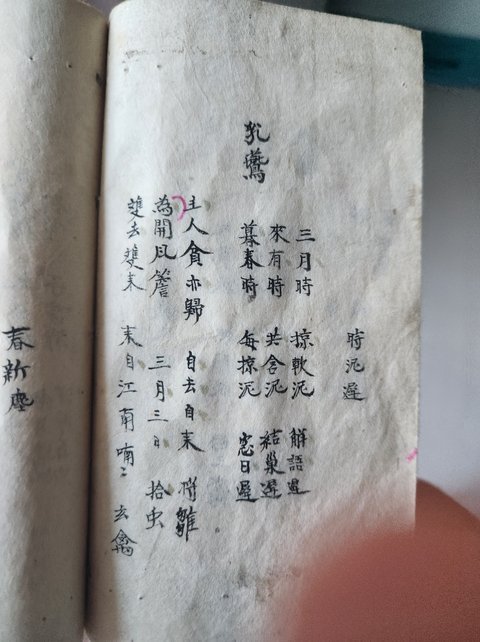 時泥遲
三月時 掠軟泥 解語遲
來有時 共含泥 結巢遲
暮春時 每掠泥 窓日遲
乳鷰
主人貧亦歸 自去自来 将雛
為開風簷 三月三日 拾虫
雙去雙来 来自江南 喃〻 玄禽
春新壘